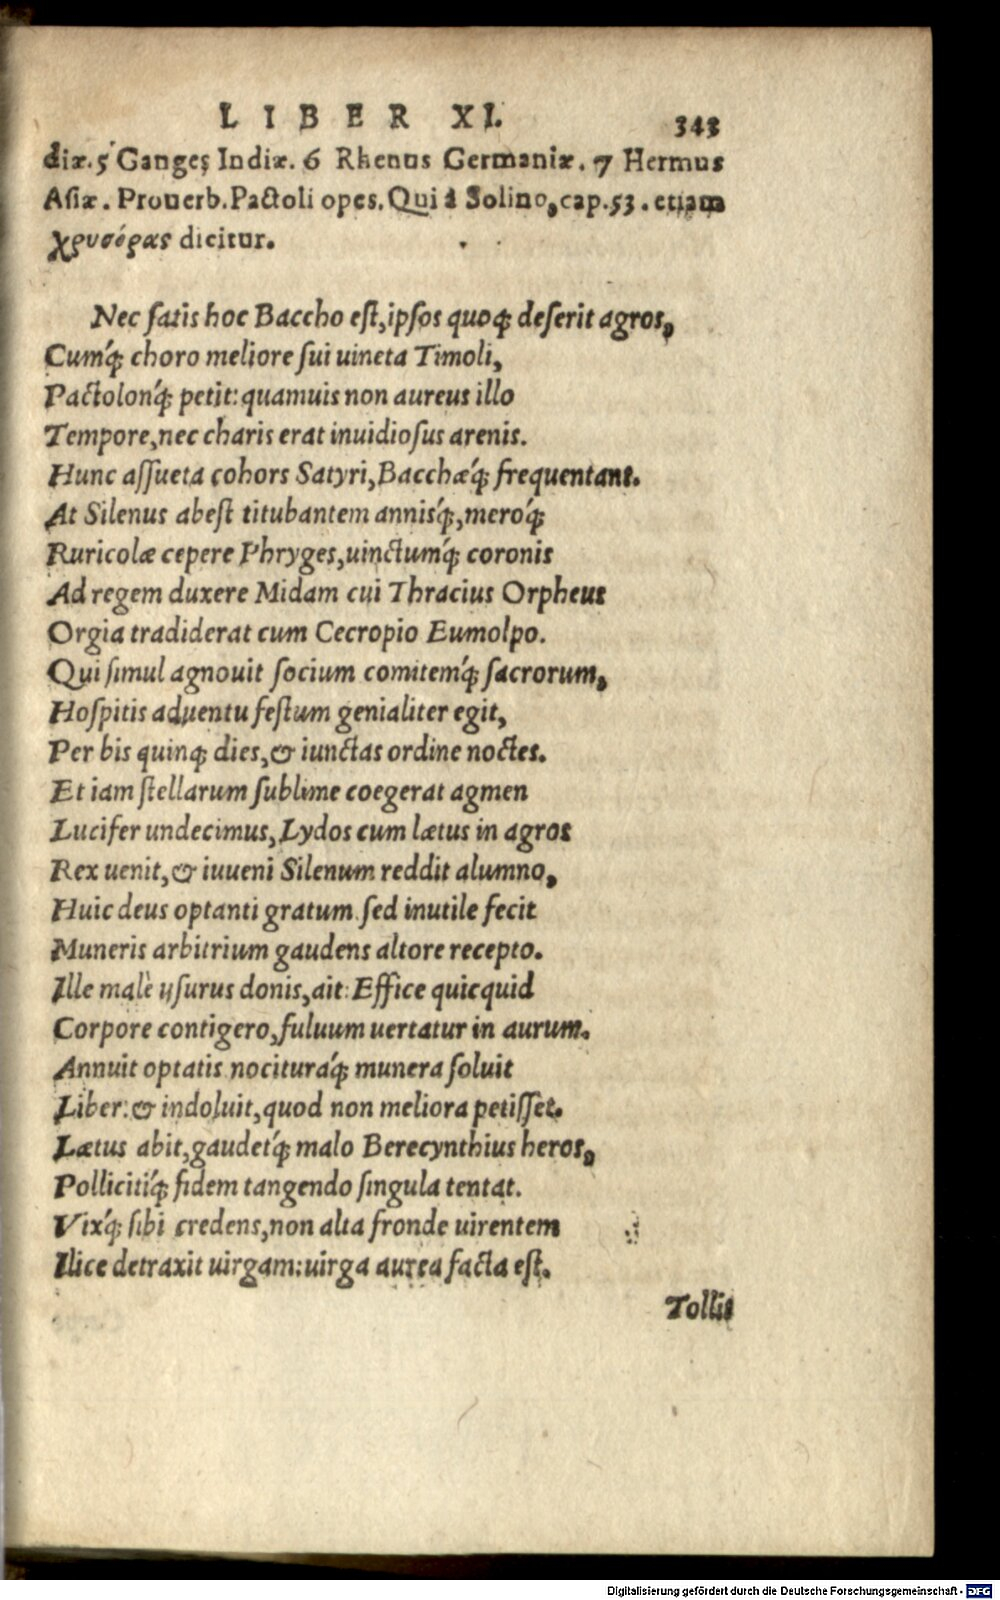 LIBER XI. 343
diæ. 5 Ganges Indiæ. 6 Rhenus Germaniæ. 7 Hermus
Asiæ. Prouerb. Pactoli opes. Qui à Solino, cap. 53. etiam
χρυσόῤῥας dicitur.
Nec satis hoc Baccho est, ipsos quoq; deserit agros,
Cumq́; choro meliore sui uineta Timoli,
Pactolonq́; petit: quamuis non aureus illo
Tempore, nec charis erat inuidiosus arenis.
Hunc assueta cohors Satyri, Bacchæq́; frequentant.
At Silenus abest titubantem annisq́;, meroq́;
Ruricolæ cepere Phryges, uinctumq́; coronis
Ad regem duxere Midam cui Thracius Orpheus
Orgia tradiderat cum Cecropio Eumolpo.
Qui simul agnouit socium comitemq́; sacrorum,
Hospitis aduentu festum genialiter egit,
Per bis quinq; dies, & iunctas ordine noctes.
Et iam stellarum sublime coegerat agmen
Lucifer undecimus, Lydos cum lætus in agros
Rex uenit, & iuueni Silenum reddit alumno,
Huic deus optanti gratum sed inutile fecit
Muneris arbitrium gaudens altore recepto.
Ille malè ysurus donis, ait: Effice quicquid
Corpore contigero, fuluum uertatur in aurum.
Annuit optatis nocituraq́; munera soluit
Liber: & indoluit, quod non meliora petisset.
Lætus abit, gaudetq́; malo Berecynthius heros,
Pollicitiq́; fidem tangendo singula tentat.
Vixq́; sibi credens, non alta fronde uirentem
Ilice detraxit uirgam: uirga aurea facta est.
Tollit
Digitalisierung gefördert durch die Deutsche Forschungsgemeinschaft - DFG